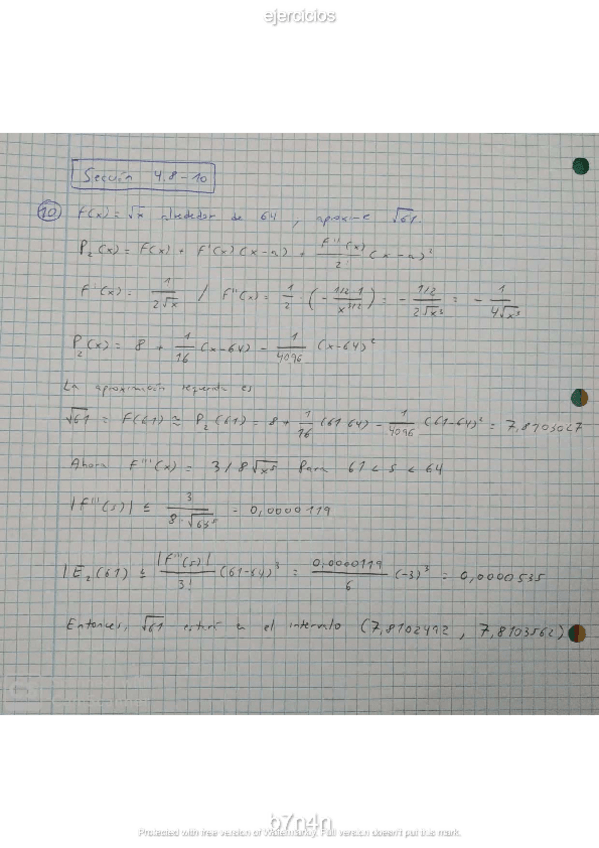 ejercicios
Sección 4.8-10
10 F(x) = √x alrededor de 64, aproxime √61.
P₂(x) = F(x) + F'(x)(x-a) + F''(x)/2 (x-a)²
F'(x) = 1/(2√x) / F''(x) = 1/2 · (- (1/2·1)/x^(3/2)) = - (1/2)/(2√x³) = - 1/(4√x³)
P₂(x) = 8 + 1/16 (x-64) - 1/4096 (x-64)²
La aproximación requerida es
√61 = F(61) ≅ P₂(61) = 8 + 1/16 (61-64) - 1/4096 (61-64)² = 7,8103027
Ahora F'''(x) = 3/8√x⁵ Para 61 < s < 64
|F'''(s)| ≤ 3/(8·√61⁵) = 0,0000119
|E₂(61)| ≤ |F'''(s)|/3! (61-64)³ = 0,0000119/6 (-3)³ = 0,0000535
Entonces, √61 en el intervalo (7,8102492, 7,8103562)
b7n4n
Protected with free version of Watermarkly. Full version doesn't put this mark.